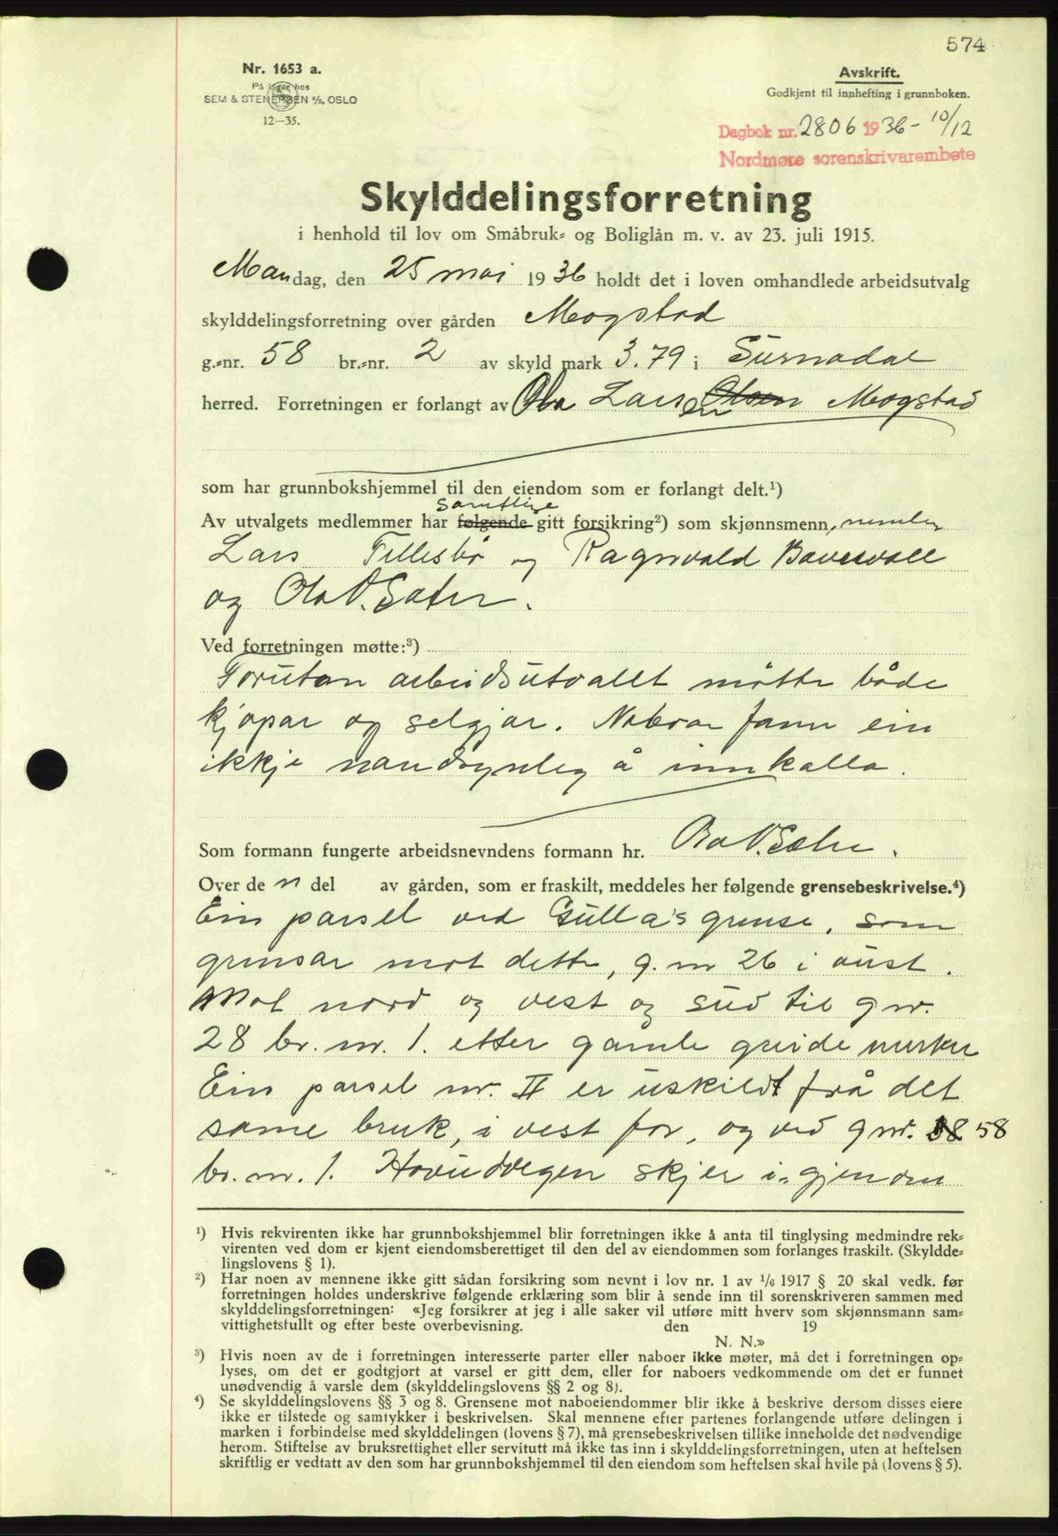 574
Nr. 1653 a.
På lager hos
SEM & STENERSEN A/S, OSLO
12—35.
Avskrift.
Godkjent til innhefting i grunnboken.
Dagbok nr. 2806 1936 - 10/12
Nordmøre sorenskrivarembete
Skylddelingsforretning
i henhold til lov om Småbruk= og Boliglån m. v. av 23. juli 1915.
Mandag, den 25 mai 1936 holdt det i loven omhandlede arbeidsutvalg
skylddelingsforretning over gården Mogstad
g.=nr. 58 br.=nr. 2 av skyld mark 3.79 i Surnadal
herred. Forretningen er forlangt av Ola Larsen Olsen Mogstad
som har grunnbokshjemmel til den eiendom som er forlangt delt.¹)
samtlige
Av utvalgets medlemmer har følgende gitt forsikring²) som skjønnsmenn, nemleg
Lars Tellesbø og Ragnvald Bævervoll
og Ola O. Sæter.
Ved forretningen møtte:³)
Forutan arbeidsutvallet møtte både
kjøpar og selgjar. Naboar fann ein
ikkje naudsynleg å innkalla.
Som formann fungerte arbeidsnevndens formann hr. Ola O. Sæter.
Over de n del av gården, som er fraskilt, meddeles her følgende grensebeskrivelse.⁴)
Ein parsel ved Gulla's grense, som
grensar mot dette, g. nr 26 i aust.
Mot nord og vest og sud til g nr.
28 br. nr. 1. etter gamle greide merker
Ein parsel nr. II er utskildt frå det
same bruk, i vest for, og ved g nr. 58
br. nr. 1. Hovudvegen skjer i-gjenom
¹) Hvis rekvirenten ikke har grunnbokshjemmel blir forretningen ikke å anta til tinglysing medmindre rek=
virenten ved dom er kjent eiendomsberettiget til den del av eiendommen som forlanges fraskilt. (Skyldde=
lingslovens § 1).
²) Har noen av mennene ikke gitt sådan forsikring som nevnt i lov nr. 1 av 1/6 1917 § 20 skal vedk. før
forretningen holdes underskrive følgende erklæring som blir å sende inn til sorenskriveren sammen med
skylddelingsforretningen: «Jeg forsikrer at jeg i alle saker vil utføre mitt hverv som skjønnsmann sam=
vittighetsfullt og efter beste overbevisning. den 19
N. N.»
³) Hvis noen av de i forretningen interesserte parter eller naboer ikke møter, må det i forretningen op=
lyses, om det er godtgjort at varsel er gitt dem, eller for naboers vedkommende om det er funnet
unødvendig å varsle dem (skylddelingslovens §§ 2 og 8).
⁴) Se skylddelingslovens §§ 3 og 8. Grensene mot naboeiendommer blir ikke å beskrive dersom disses eiere
ikke er tilstede og samtykker i beskrivelsen. Skal mennene efter partenes forlangende utføre delingen i
marken i forbindelse med skylddelingen (lovens § 7), må grensebeskrivelsen tillike inneholde det nødvendige
herom. Stiftelse av bruksrettighet eller servitutt må ikke tas inn i skylddelingsforretningen, uten at heftelsen
skriftlig er vedtatt av den som har grunnbokshjemmel til den eiendom som heftelsen skal hvile på (lovens § 5).